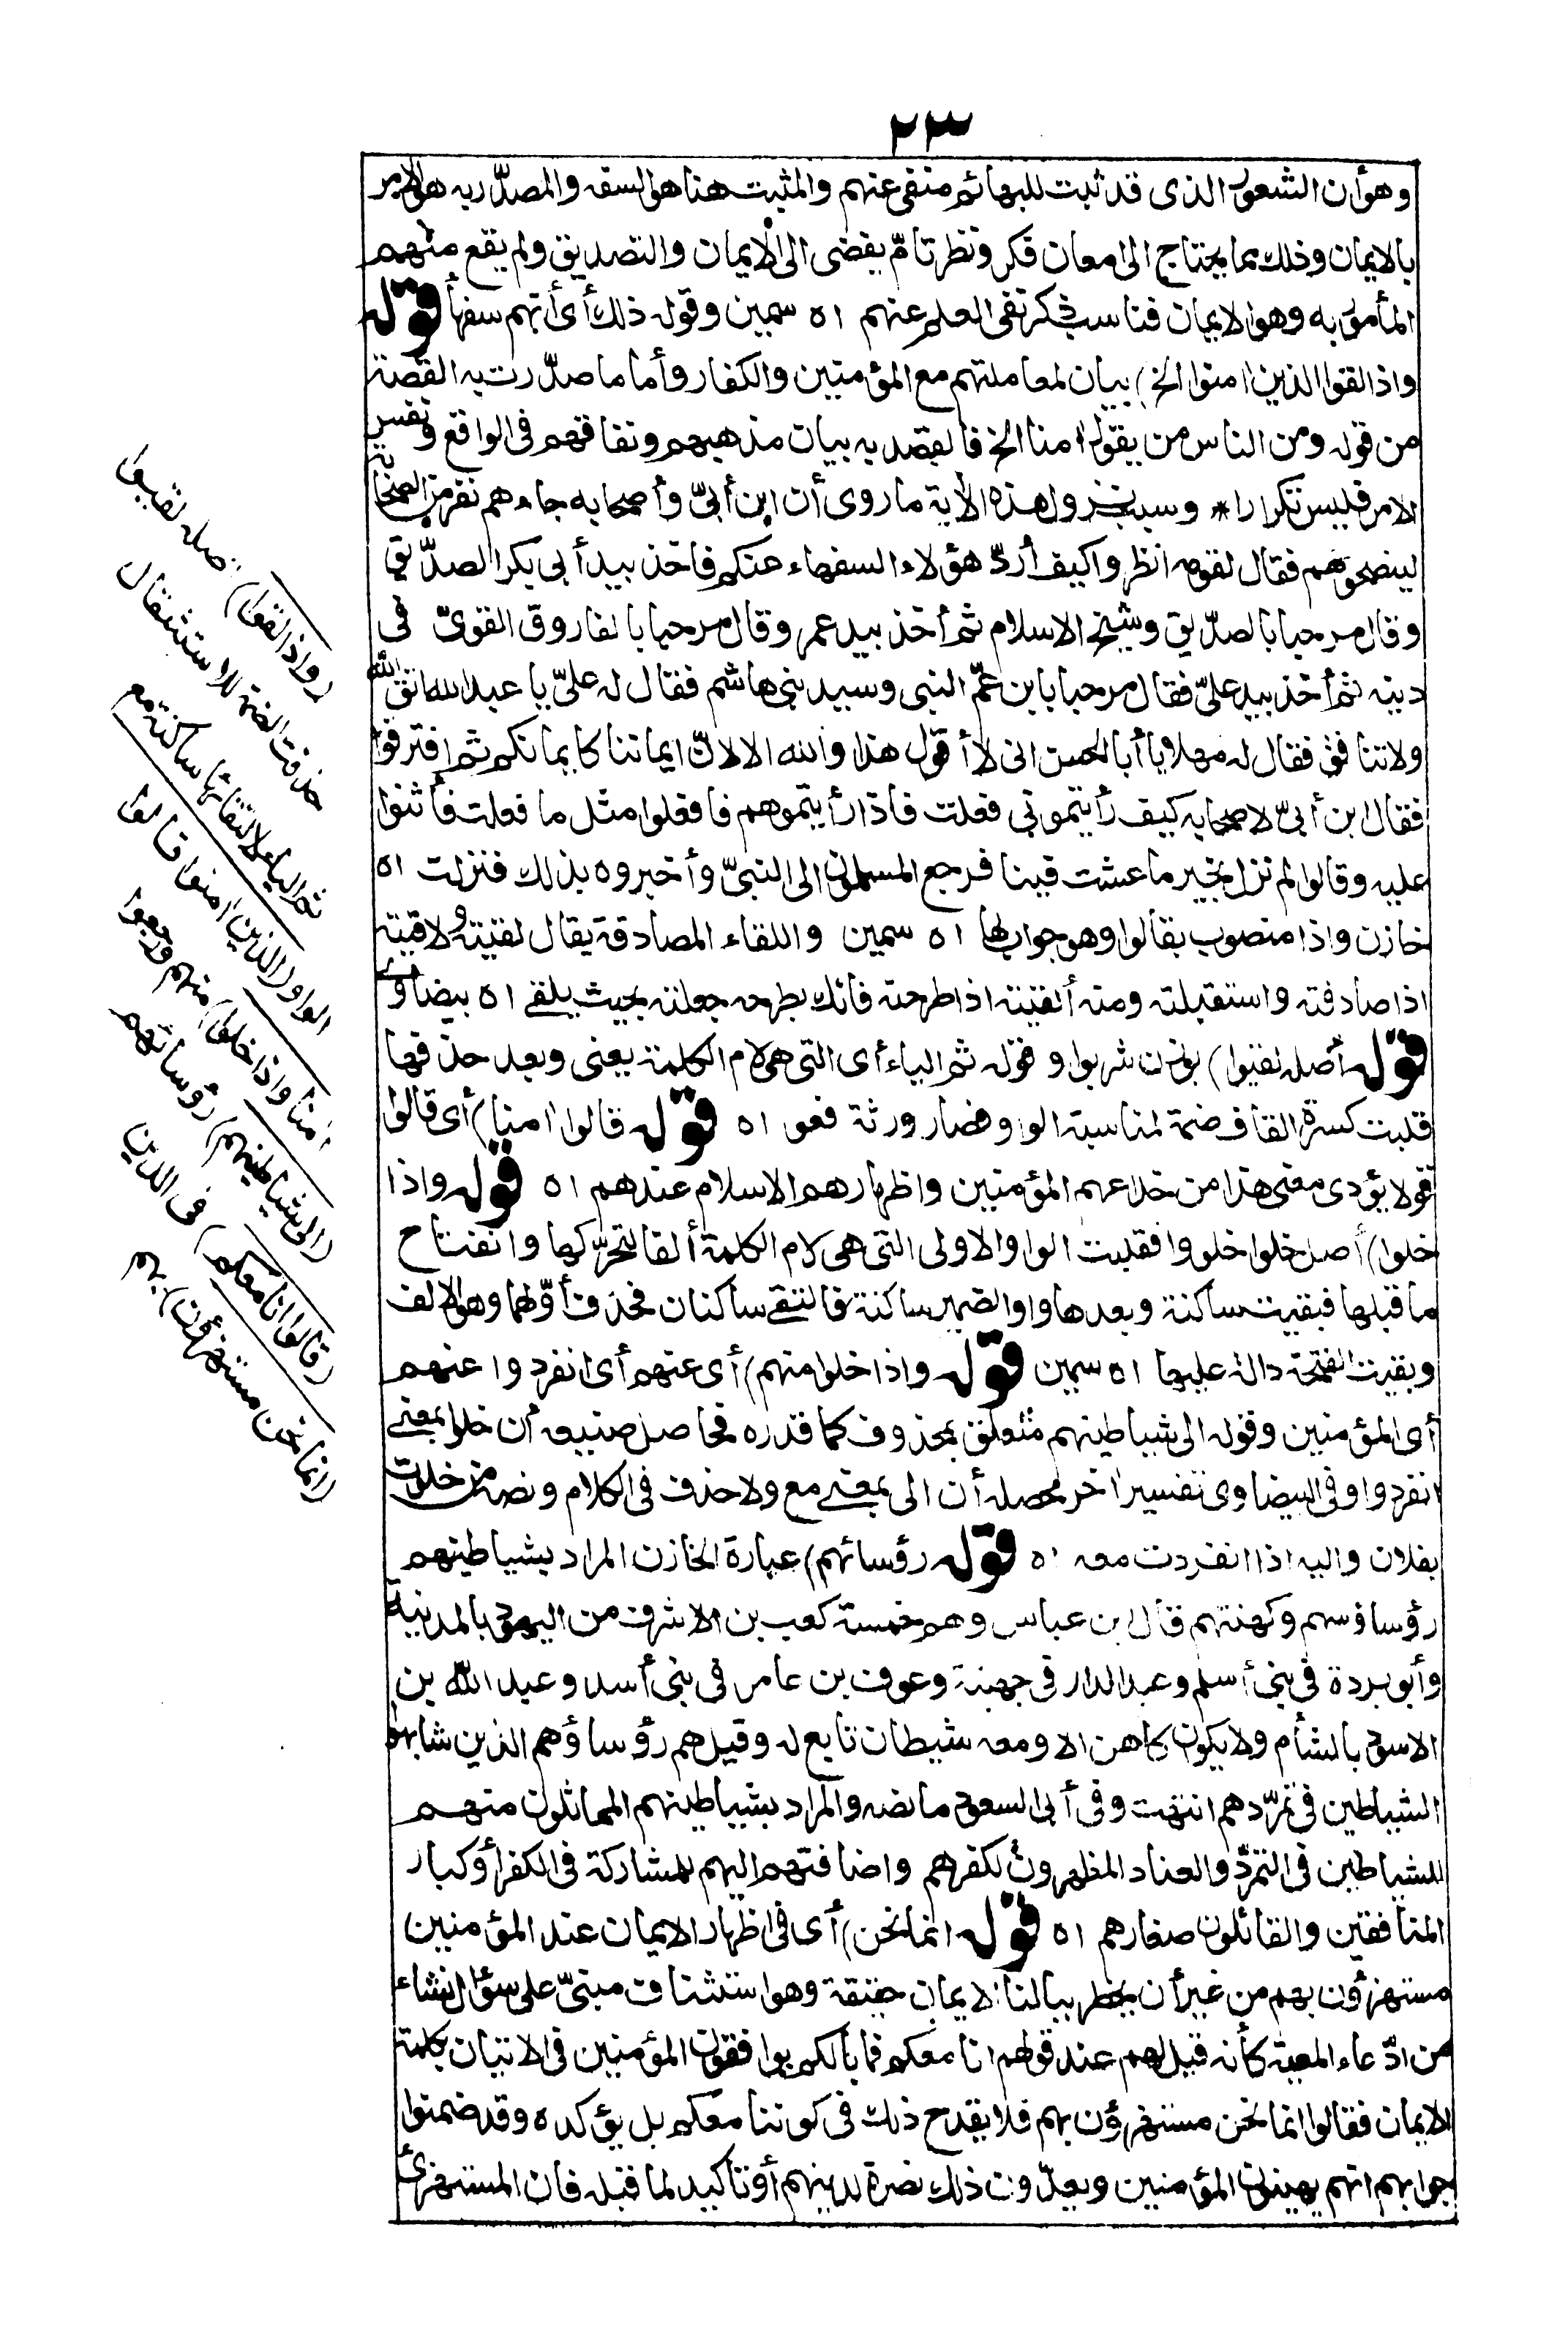 ٢٣
وهو أن الشعور الذى قد ثبت للبهائم منفى عنهم والمثبت هنا هو السفه والمصدّر به هو الامر
بالايمان وذلك مما يحتاج الى امعان فكر ونظر تامّ يفضى الى الايمان والتصديق ولم يقع منهم
المأمور به وهو الايمان فناسب ذكر نفى العلم عنهم اه سمين وقوله ذلك أى أنهم سفهأ قوله
واذا لقوا الذين امنوا الخ) بيان لمعاملتهم مع المؤمنين والكفار وأما ما صدّرت به القصة
من قوله ومن الناس من يقول امنا الخ فالقصد به بيان مذهبهم ونفاقهم فى الواقع ونفس
الامر فليس تكرارا * وسبب نزول هذه الأية ما روى أن ابن أبىّ وأصحابه جاءهم نفر من الصحابة
لينصحوهم فقال لقومه انظروا كيف أردّ هؤلاء السفهاء عنكم فاخذ بيد أبى بكر الصدّيق
وقال مرحبا بالصدّيق وشيخ الاسلام ثم أخذ بيد عمر وقال مرحبا بالفاروق القوىّ فى
دينه ثم أخذ بيد علىّ فقال مرحبا بابن عمّ النبى وسيد بنى هاشم فقال له علىّ يا عبد الله اتق الله
ولا تنافق فقال له مهلا يا أبا الحسن انى لا أقول هذا والله الا لانّ ايماننا كايمانكم ثم افترقوا
فقال ابن أبىّ لاصحابه كيف رأيتمونى فعلت فاذا رأيتموهم فافعلوا مثل ما فعلت فأثنوا
عليه وقالوا لم نزل بخير ما عشت فينا فرجع المسلمون الى النبىّ وأخبروه بذلك فنزلت اه
خازن واذا منصوب بقالوا وهو جواب لها اه سمين واللقاء المصادقة يقال لقيته ولاقيته
اذا صادفته واستقبلته ومنه ألقيته اذا طرحته فانك بطرحه جعلته بحيث يلقى اه بيضاوى
قوله أصله لقيوا) بوزن شربوا وقوله ثم الياء أى التى هى لام الكلمة يعنى وبعد حذفها
قلبت كسرة القاف ضمة لمناسبة الواو فصار ورنة فعوا اه قوله قالوا امنا) أى قالوا
قولا يؤدى معنى هذا من خداعهم المؤمنين واظهارهم الاسلام عندهم اه قوله واذا
خلوا) أصل خلوا خلووا فقلبت الواو الاولى التى هى لام الكلمة ألفا لتحرّكها وانفتاح
ما قبلها فبقيت ساكنة وبعدها واو الضمير ساكنة فالتقى ساكنان فحذف أوّلهما وهو الالف
وبقيت الفتحة دالة عليها اه سمين قوله واذا خلوا منهم) أى عنهم أى انفردوا عنهم
أى المؤمنين وقوله الى شياطينهم متعلق بمحذوف كما قدره فحاصل صنيعه أن خلوا بمعنى
انفردوا وفى البيضاوى تفسير اخر محصله أن الى بمعنى مع ولا حذف فى الكلام ونصه من خلوت
بفلان واليه اذا انفردت معه اه قوله رؤسائهم) عبارة الخازن المراد بشياطينهم
رؤساؤسهم وكهنتهم قال ابن عباس وهم خمسة كعب بن الاشرف من اليهود بالمدينة
وأبو بردة فى بنى أسلم وعبد الدار فى جهينة وعوف بن عامر فى بنى أسد وعبد الله بن
الاسود بالشأم ولا يكون كاهن الا ومعه شيطان تابع له وقيل هم رؤساؤهم الذين شابهوا
الشياطين فى تمرّدهم انتهت وفى أبى السعود ما نصه والمراد بشياطينهم المماثلون منهم
للشياطين فى التمرّد والعناد المظهرون لكفرهم واضافتهم اليهم للمشاركة فى الكفر أو كبار
المنافقين والقائلون صغارهم اه قوله انما نحن) أى فى اظهار الايمان عند المؤمنين
مستهزؤن بهم من غير أن يخطر ببالنا الايمان حقيقة وهو استئناف مبنىّ على سؤال نشاء
من ادّعاء المعية كأنه قيل لهم عند قولهم انا معكم فما بالكم توافقون المؤمنين فى الاتيان بكلمة
الايمان فقالوا انما نحن مستهزؤن بهم فلا يقدح ذلك فى كوننا معكم بل يؤكده وقد ضمنوا
جوابهم انهم يهينون المؤمنين ويعدّون ذلك نصرة لدينهم أو تأكيد لما قبله فان المستهزئ
(واذا لقوا) أصله لقيوا
حذفت الضمة للاستثقال
ثم الياء لالتقائها ساكنة مع
الواو (الذين امنوا قالوا
امنا واذا خلوا) منهم ورجعوا
(الى شياطينهم) رؤسائهم
(قالوا انا معكم) فى الدين
(انما نحن مستهزؤن) بهم